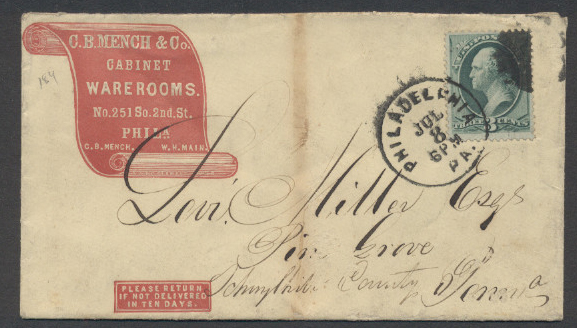 C.B. MENCH & Co.
CABINET
WAREROOMS.
No. 251 So. 2nd. St.
PHILA
C. B. MENCH. W. H. MAIR.
184
PHILADELPHIA
JUL
8
6PM
PA.
THREE CENTS
Levi Miller Esqr
Pine Grove
Schuylkill County Penna
PLEASE RETURN
IF NOT DELIVERED
IN TEN DAYS.